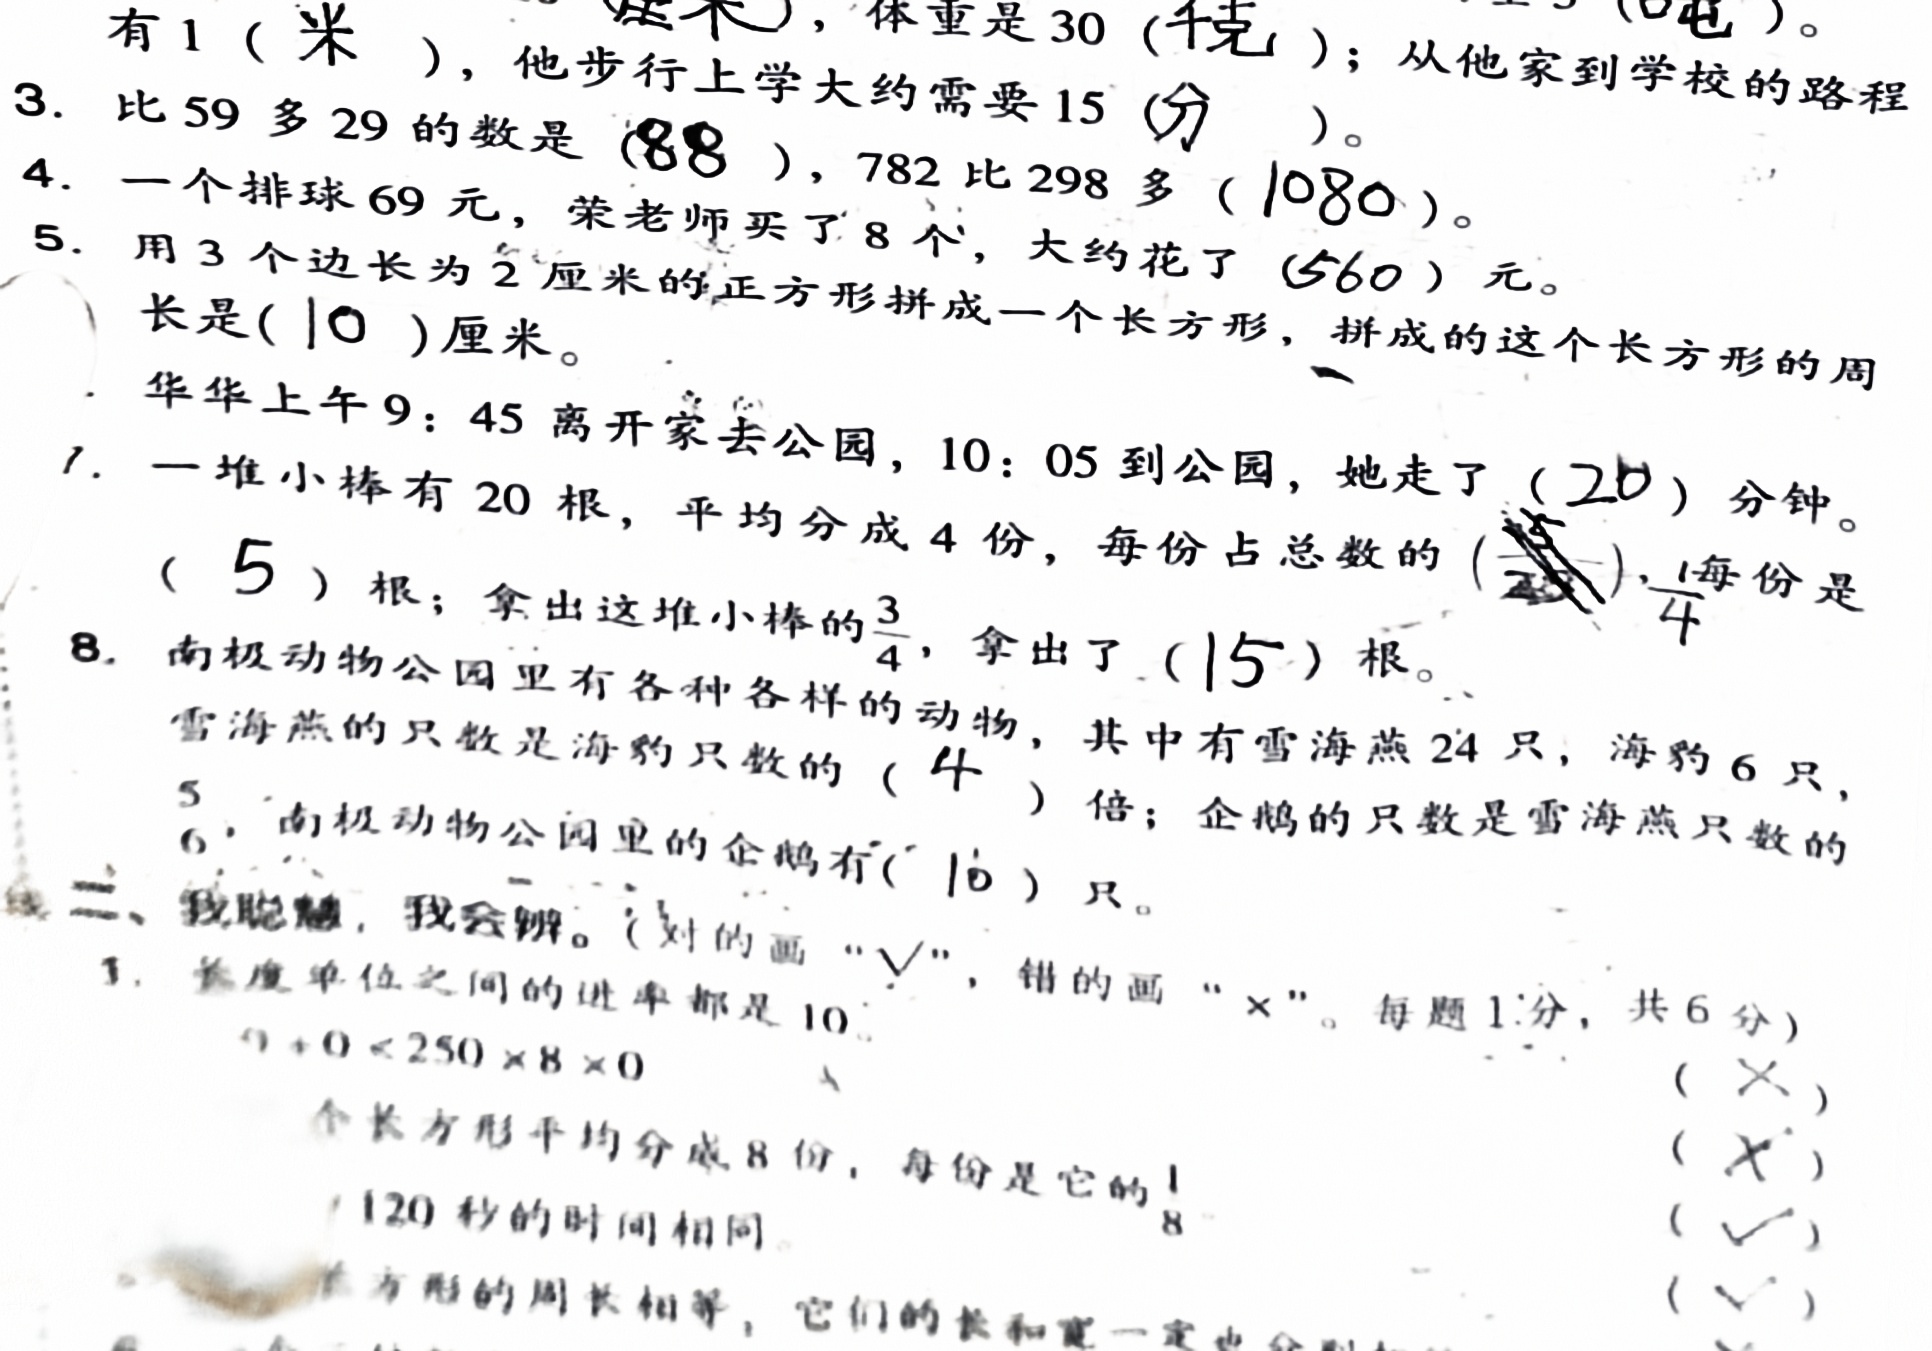 厘米），体重是 30（千克）；从他家到学校的路程
有 1（ 米 ），他步行上学大约需要 15（分 ）。
3. 比 59 多 29 的数是（88 ），782 比 298 多（1080）。
4. 一个排球 69 元，荣老师买了 8 个，大约花了（560）元。
5. 用 3 个边长为 2 厘米的正方形拼成一个长方形，拼成的这个长方形的周
长是(10 )厘米。
华华上午 9：45 离开家去公园，10：05 到公园，她走了（20）分钟。
7. 一堆小棒有 20 根，平均分成 4 份，每份占总数的（ ），1/4 每份是
（ 5 ）根；拿出这堆小棒的3/4，拿出了（15）根。
8. 南极动物公园里有各种各样的动物，其中有雪海燕 24 只，海豹 6 只，
雪海燕的只数是海豹只数的（ 4 ）倍；企鹅的只数是雪海燕只数的
5/6，南极动物公园里的企鹅有( 10 ) 只。
二、我聪慧，我会辨。（对的画“√”，错的画“×”。每题 1 分，共 6 分）
1. 长度单位之间的进率都是 10。 （ × ）
0 + 0 < 250 × 8 × 0 （ × ）
个长方形平均分成 8 份，每份是它的1/8 （ √ ）
120 秒的时间相同。 （ √ ）
长方形的周长相等，它们的长和宽一定也分别